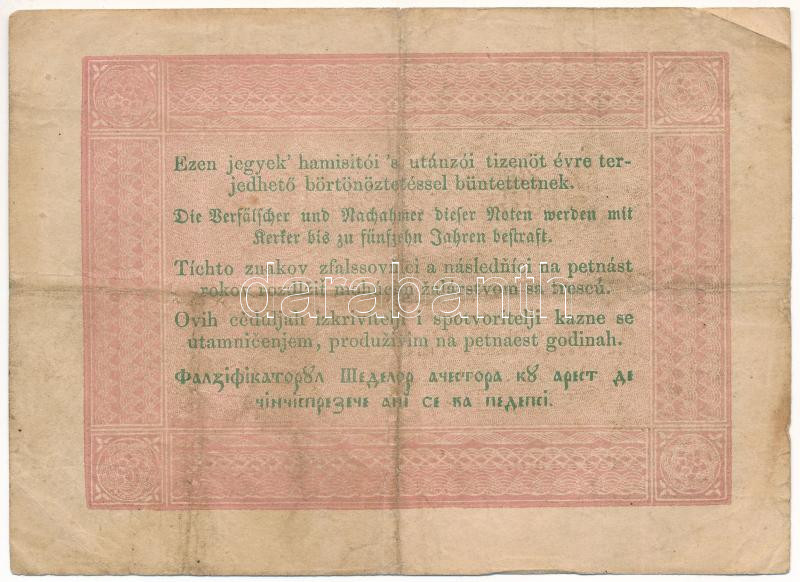 Ezen jegyek' hamisitói 's utánzói tizenöt évre ter-
jedhető börtönöztetéssel büntettetnek.
Die Verfälscher und Nachahmer dieser Noten werden mit
Kerker bis zu fünfzehn Jahren bestraft.
Tíchto znakov zfalssovňíci a následňíci na petnást
rokov žalárstvom sa trescú.
Ovih ceduljah izkrivitelji i spotvoritelji kazne se
utamničenjem, produživim na petnaest godinah.
Фалзіфікаторꙋл Шеделор ачестора кꙋ арест де
чінчіспрезече ані се ва педепсі.
darabanth